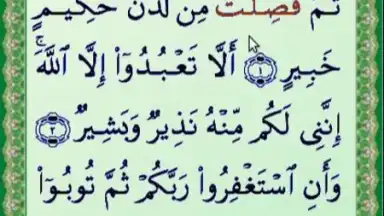 ثُمَّ فُصِّلَتْ مِن لَّدُنْ حَكِيمٍ
خَبِيرٍ ۝١ أَلَّا تَعْبُدُوٓا۟ إِلَّا ٱللَّهَ ۚ
إِنَّنِى لَكُم مِّنْهُ نَذِيرٌ وَبَشِيرٌ ۝٢
وَأَنِ ٱسْتَغْفِرُوا۟ رَبَّكُمْ ثُمَّ تُوبُوٓا۟